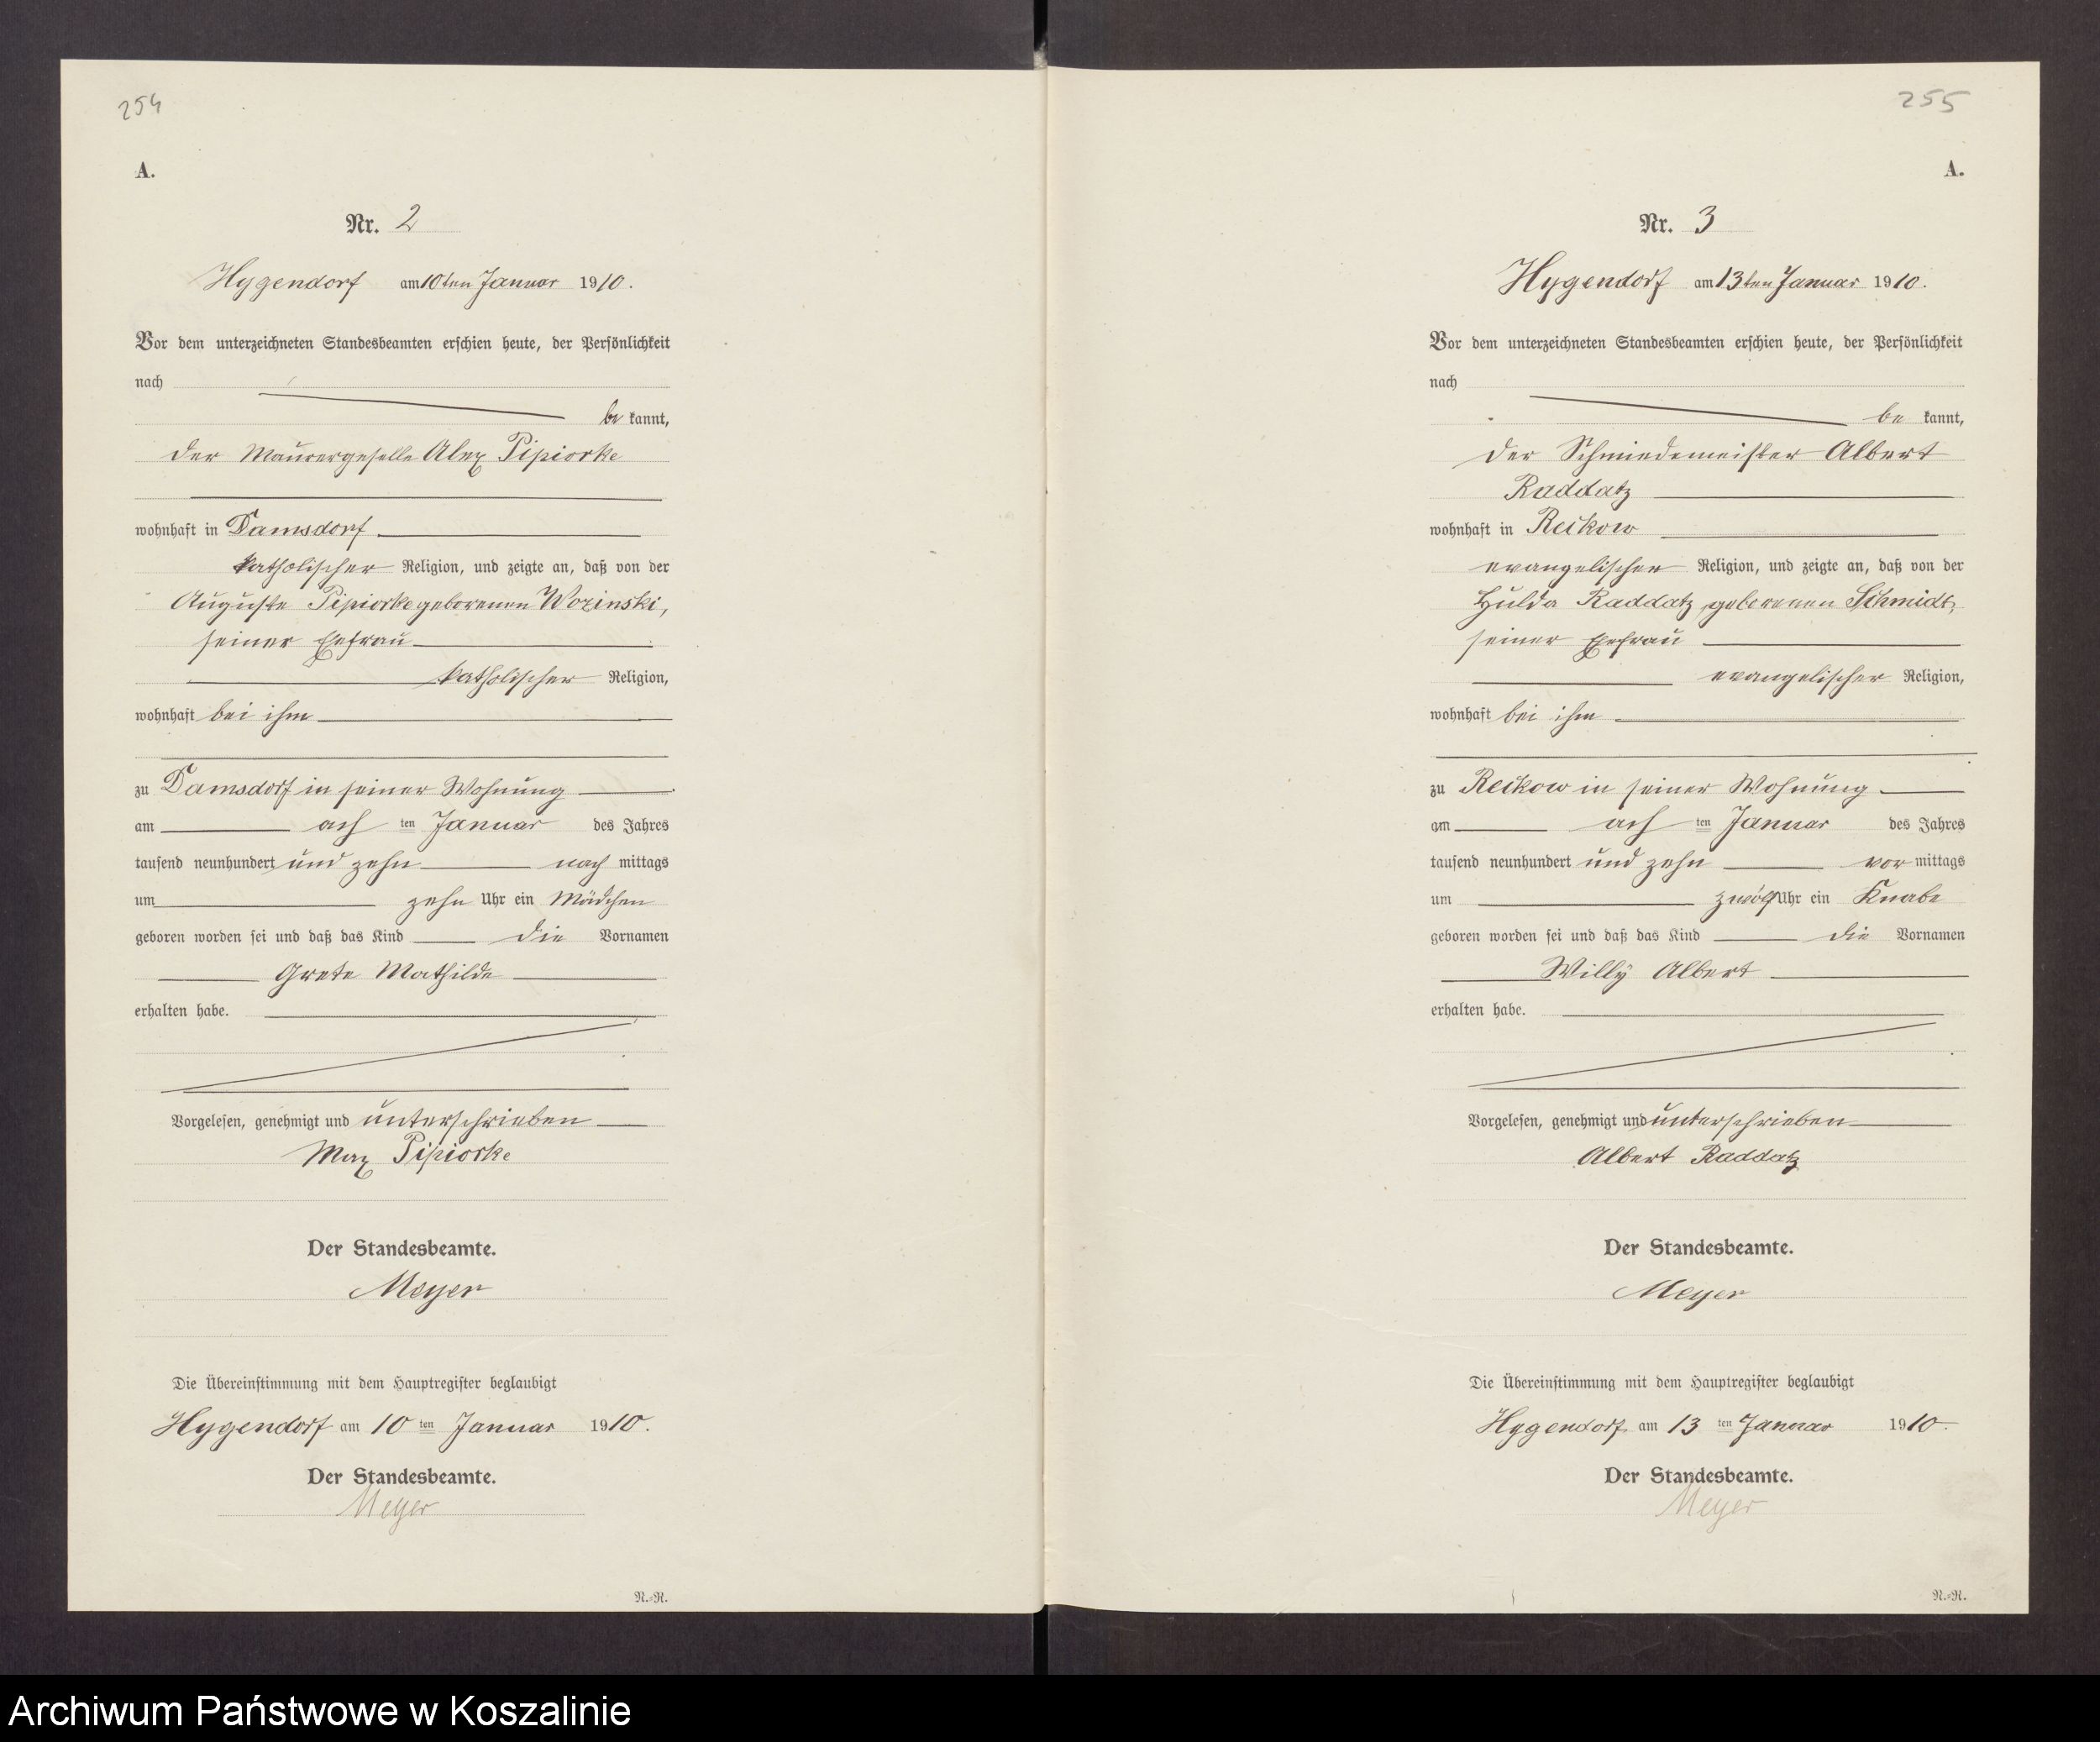 254
A.
Nr. 2
Hygendorf am 10ten Januar 1910.
Vor dem unterzeichneten Standesbeamten erschien heute, der Persönlichkeit
nach
be kannt,
der Maurergeselle Alex Pipiorke
wohnhaft in Damsdorf
katholischer Religion, und zeigte an, daß von der
Auguste Pipiorke geborenen Wozinski,
seiner Ehefrau
katholischer Religion,
wohnhaft bei ihm
zu Damsdorf in seiner Wohnung
am ach ten Januar des Jahres
tausend neunhundert und zehn nach mittags
um zehn Uhr ein Mädchen
geboren worden sei und daß das Kind die Vornamen
Grete Mathilde
erhalten habe.
Vorgelesen, genehmigt und unterschrieben
Pipiorke
Der Standesbeamte.
Meyer
Die Übereinstimmung mit dem Hauptregister beglaubigt
Hygendorf am 10 ten Januar 1910.
Der Standesbeamte.
Meyer
N.=R.
255
A.
Nr. 3
Hygendorf am 13ten Januar 1910.
Vor dem unterzeichneten Standesbeamten erschien heute, der Persönlichkeit
nach
be kannt,
der Schmiedemeister Albert
Raddatz
wohnhaft in Reikow
evangelischer Religion, und zeigte an, daß von der
Hulda Raddatz, geborenen Schmidt,
seiner Ehefrau
evangelischer Religion,
wohnhaft bei ihm
zu Reikow in seiner Wohnung
am ach ten Januar des Jahres
tausend neunhundert und zehn vor mittags
um zwölf Uhr ein Knabe
geboren worden sei und daß das Kind die Vornamen
Willy Albert
erhalten habe.
Vorgelesen, genehmigt und unterschrieben
Albert Raddatz
Der Standesbeamte.
Meyer
Die Übereinstimmung mit dem Hauptregister beglaubigt
Hygendorf am 13 ten Januar 1910.
Der Standesbeamte.
Meyer
N.=R.
Archiwum Państwowe w Koszalinie